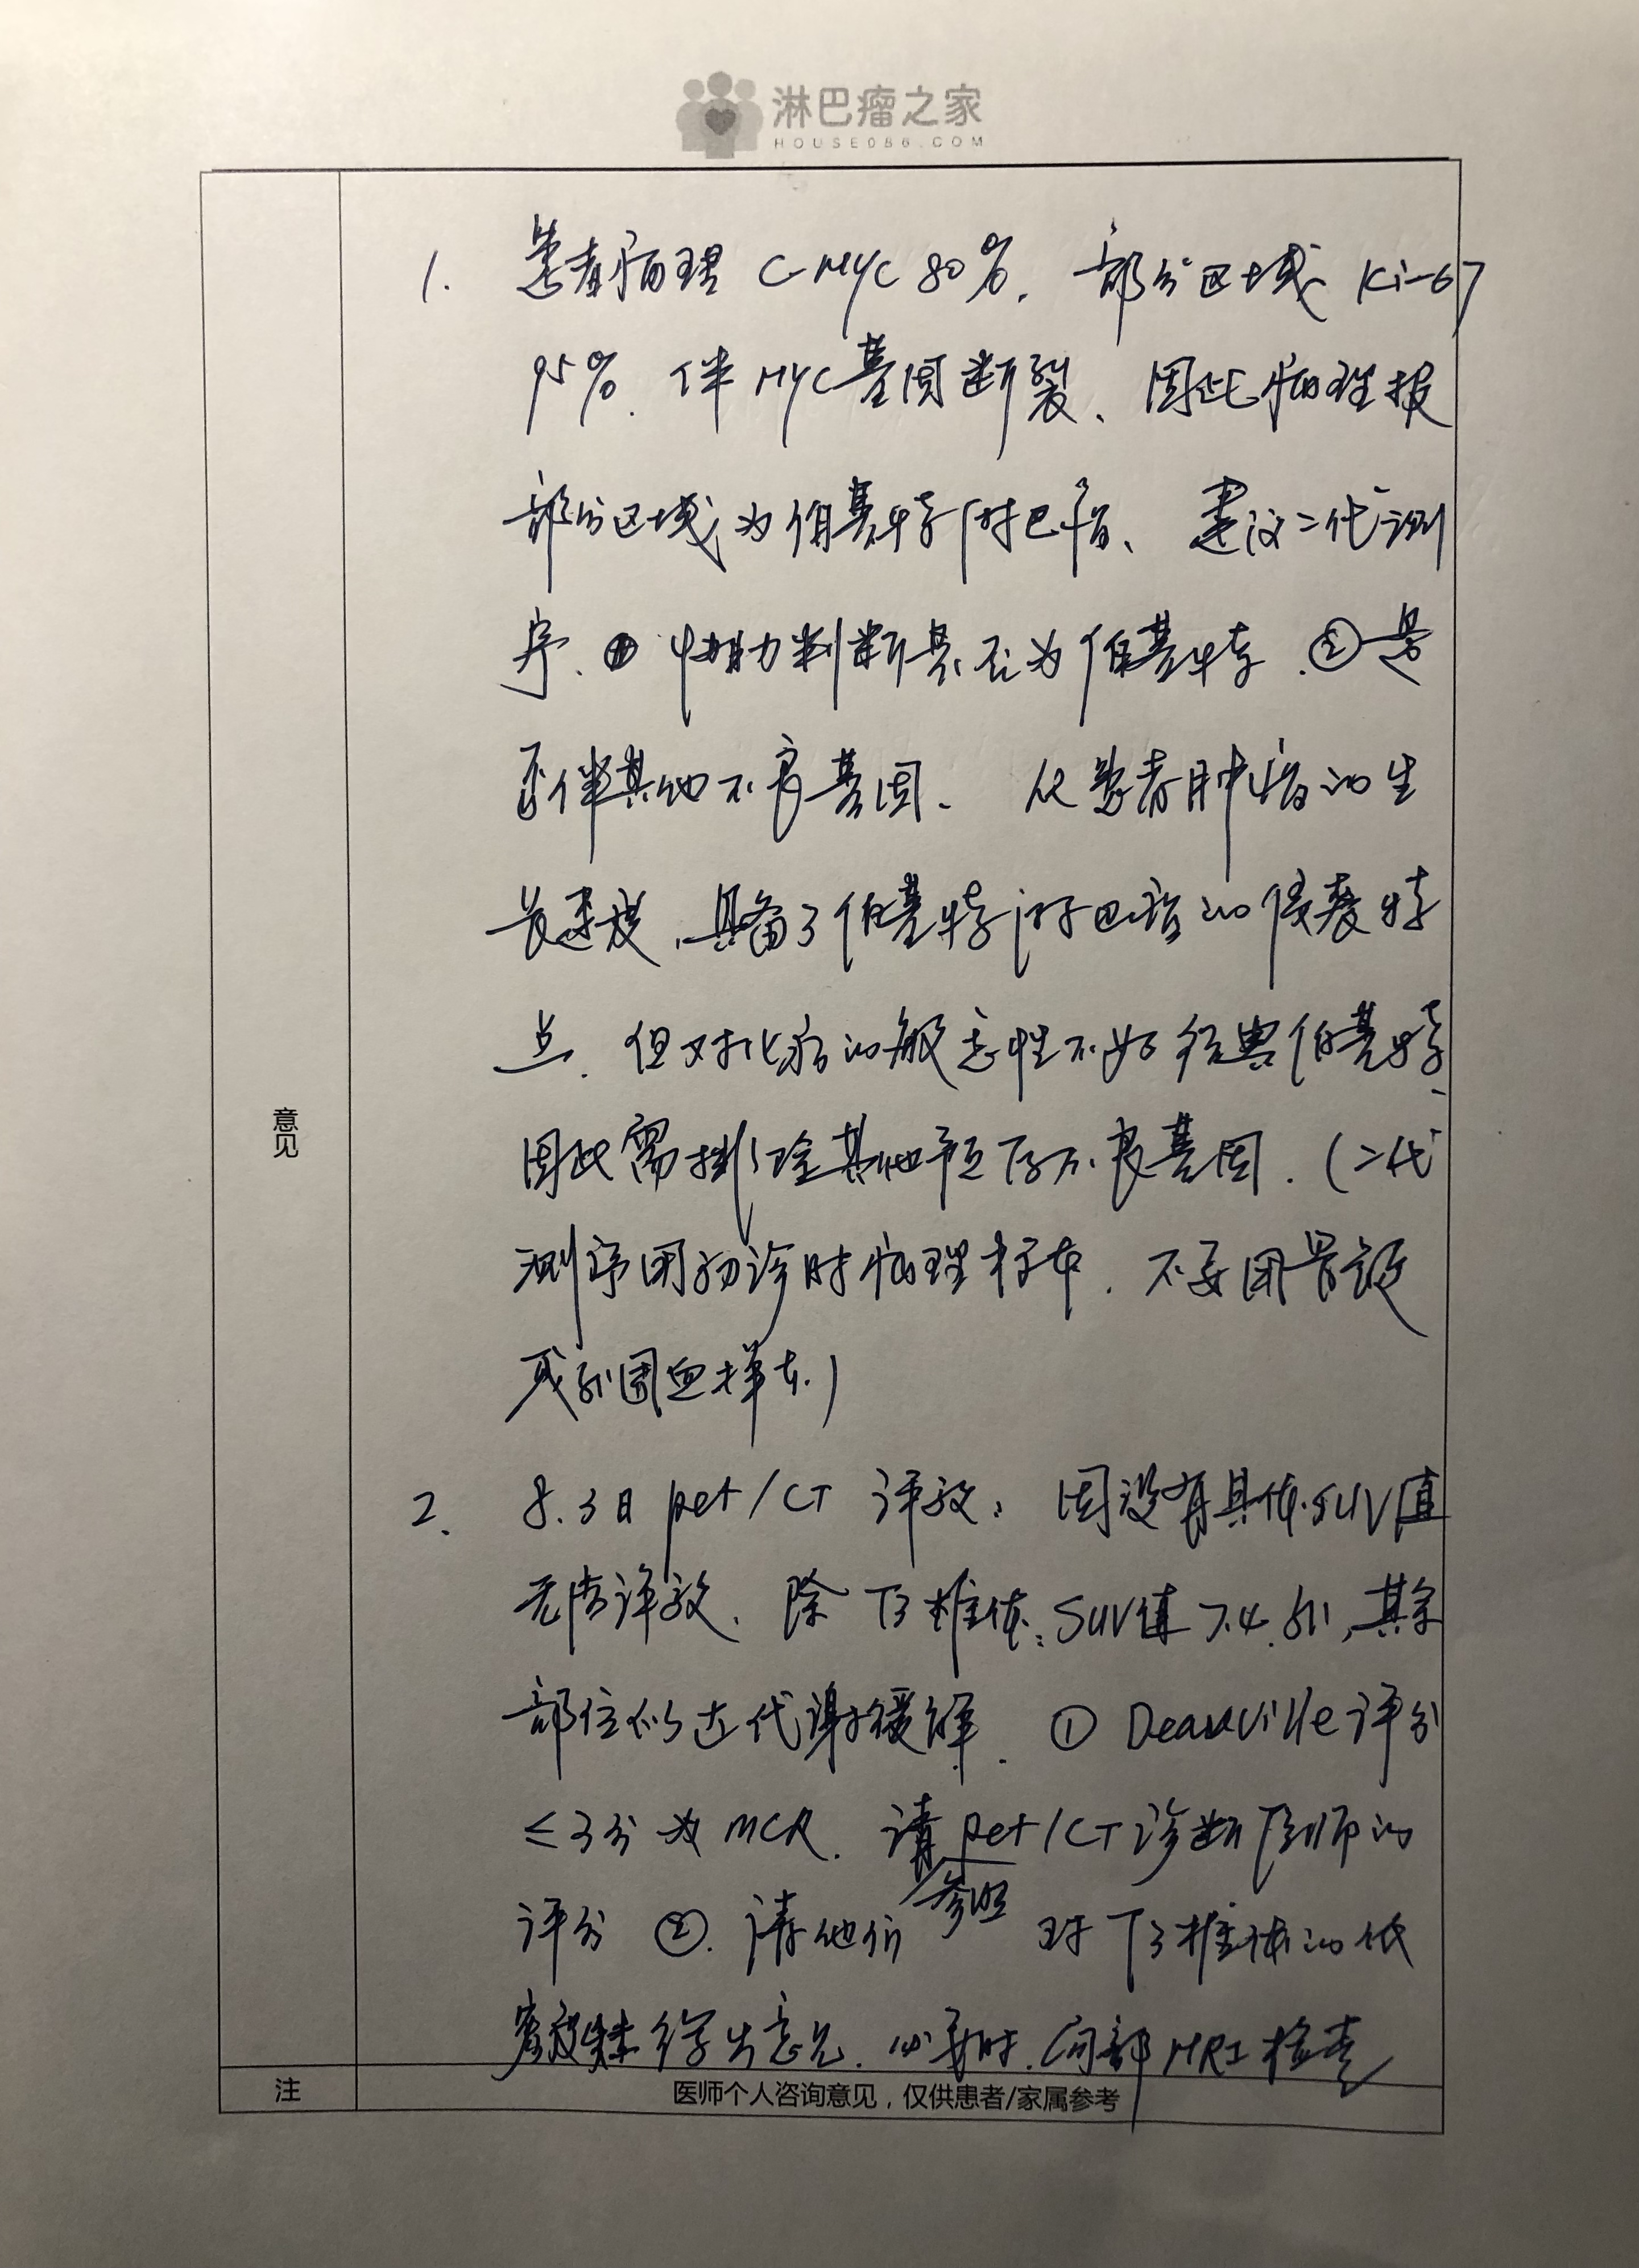 淋巴瘤之家
HOUSE086.COM
1. 患者病理 C-MYC 80%. 部分区域 Ki-67
95%. 伴 MYC 基因断裂、因此病理报
部分区域为伯基特淋巴瘤、建议二代测
序. ① 协助判断是否为伯基特. ②是
否伴其他不良基因. 从患者肿瘤的生
长速度,具备了伯基特淋巴瘤的侵袭特
点. 但对化疗的敏感性不如经典伯基特、
因此需排除其他预后不良基因. (二代
测序用初诊时病理标本. 不要用骨髓
或外周血样本.)
意见
2. 8.3日 pet/CT 评效: 因没有具体SUV值
无法评效. 除 T3椎体: SUV值 7.4. 外, 其余
部位似达代谢缓解. ① Deauville 评分
≤3分 为 MCR. 请 pet/CT 诊断医师的
参照
评分 ②. 请他们 对 T3椎体的低
密度 给予出意见. 必要时. 局部 MRI 检查
注
医师个人咨询意见，仅供患者/家属参考